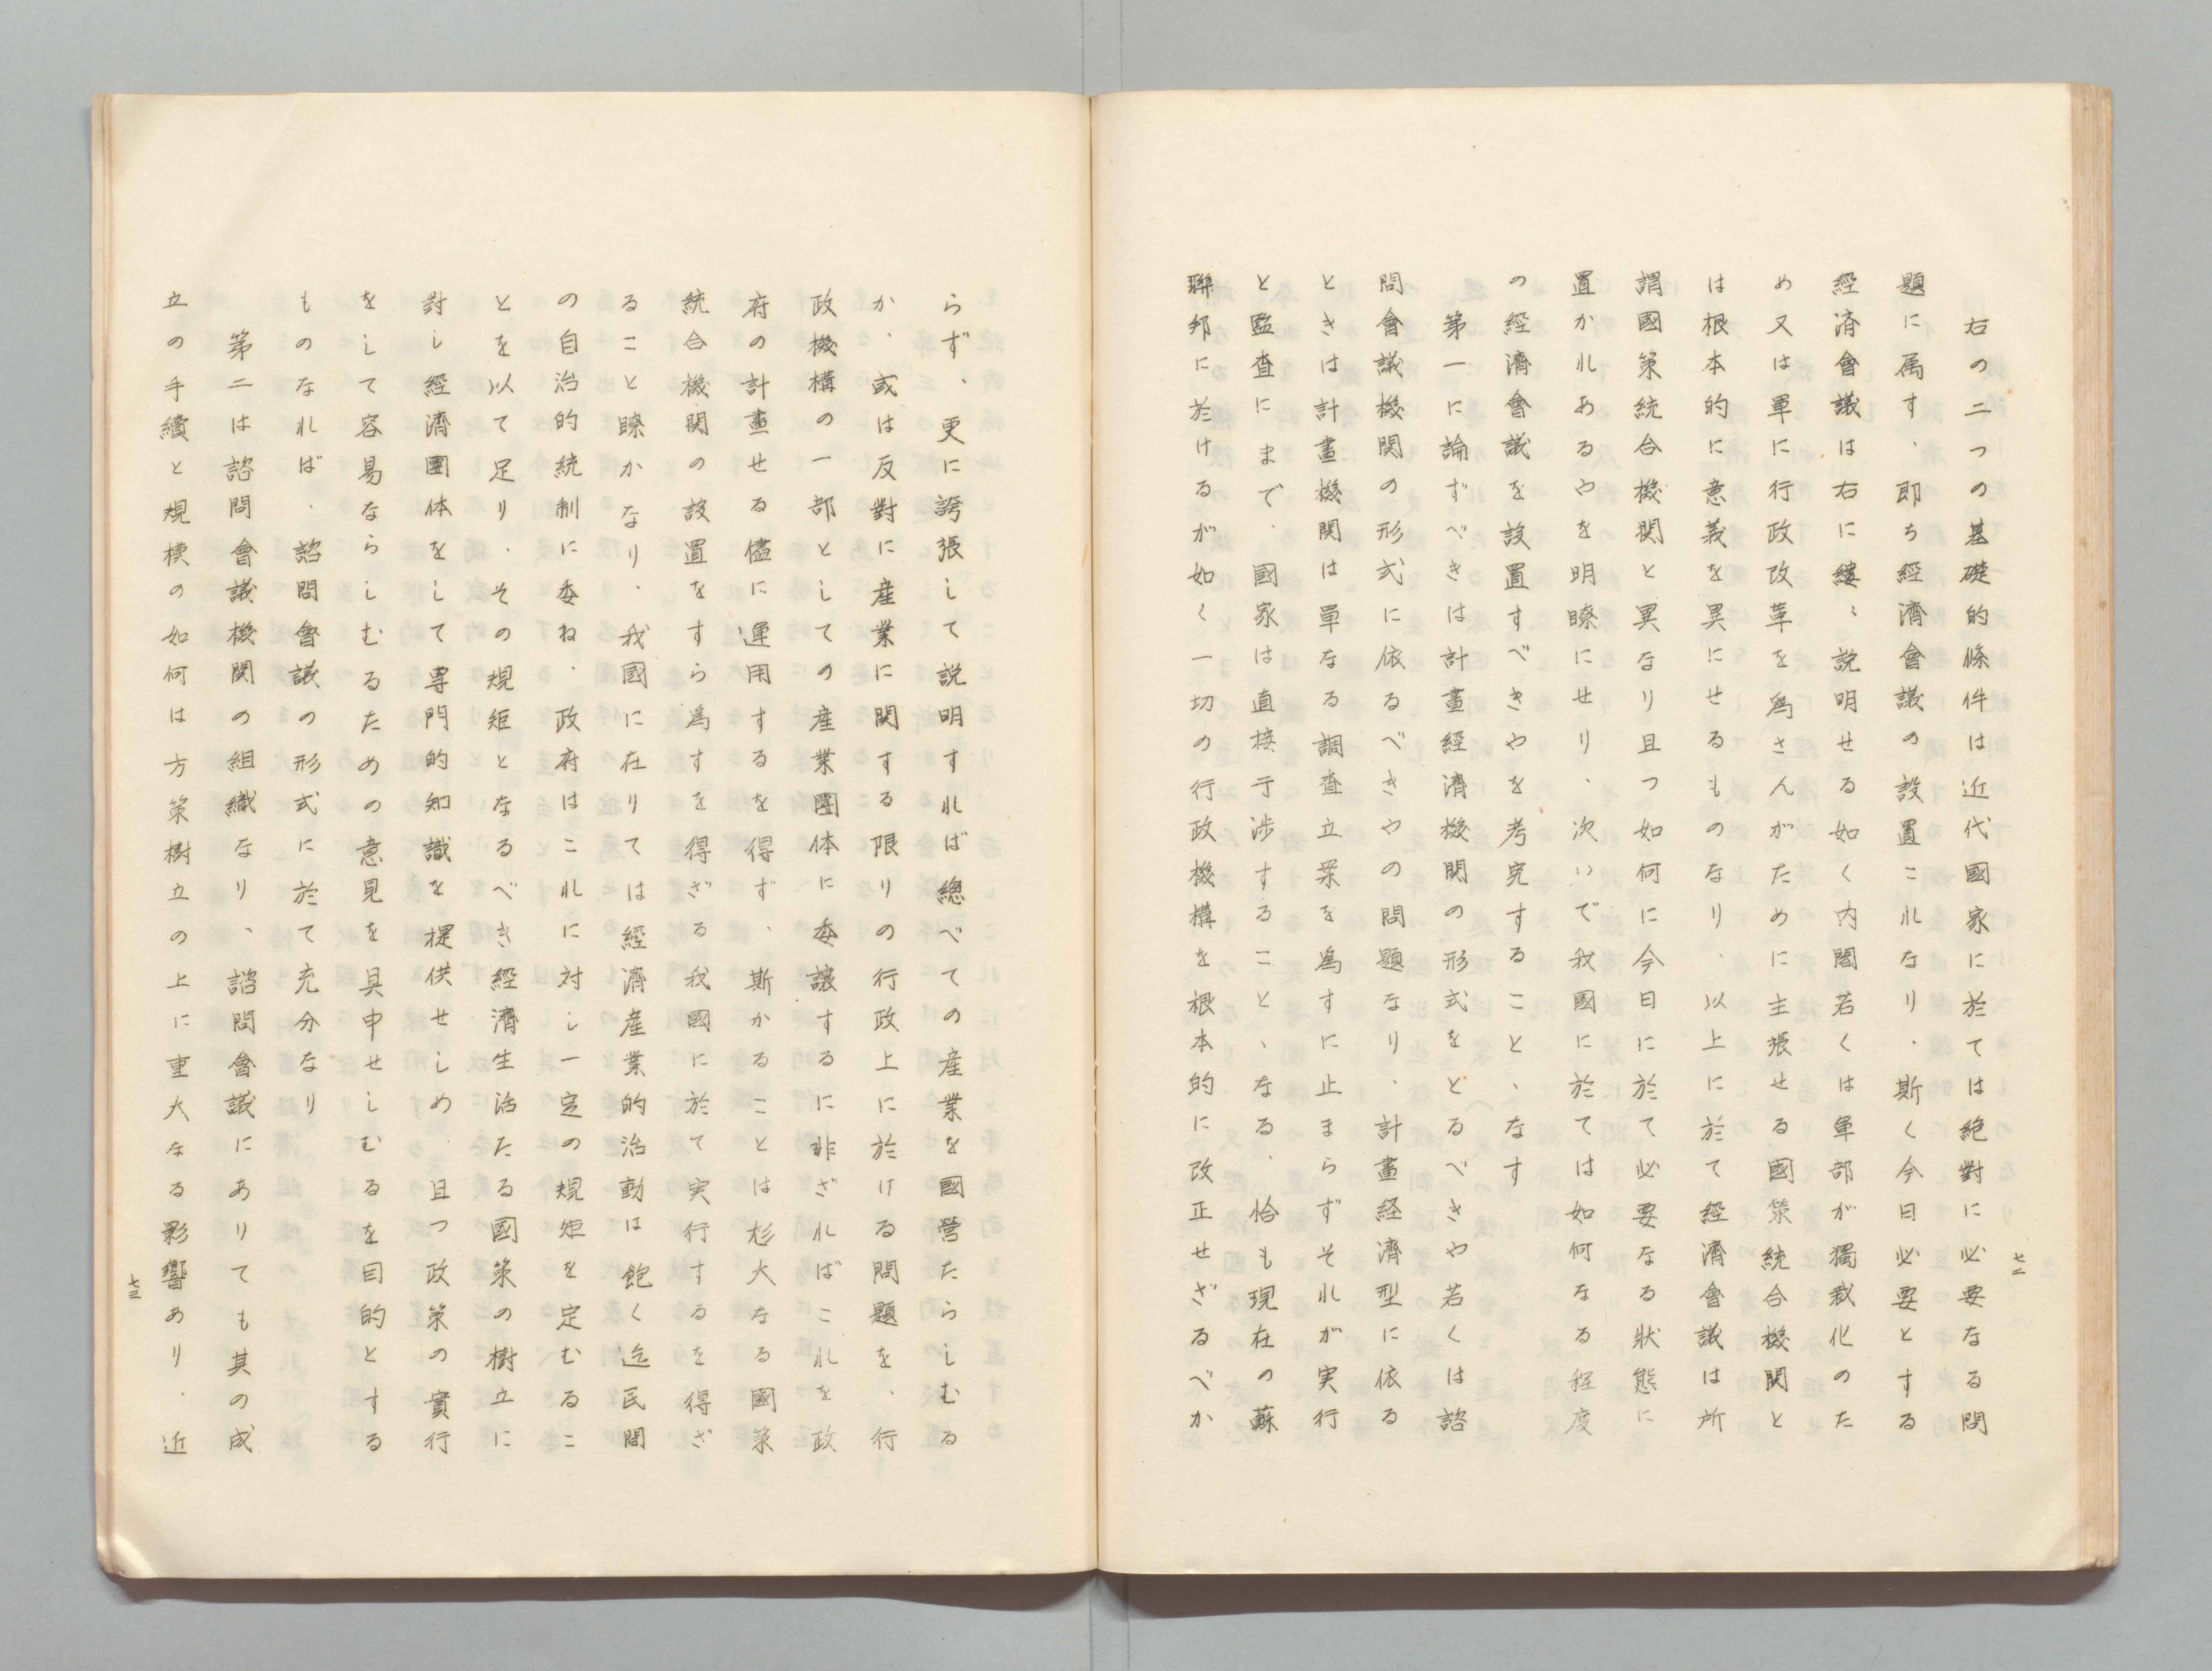 右の二つの基礎的條件は近代國家に於ては絶對に必要なる問
題に属す、即ち経濟會議の設置これなり、斯く今日必要とする
経済會議は右に縷〻説明せる如く内閣若くは軍部が獨裁化のた
め又は單に行政改革を為さんがために主張せる國策統合機関と
は根本的に意義を異にせるものなり、以上に於て経濟會議は所
謂國策統合機関と異なり且つ如何に今日に於て必要なる狀態に
置かれあるやを明瞭にせり、次いで我國に於ては如何なる程度
の経濟會議を設置すべきやを考究すること、なす
第一に論ずべきは計畫経濟機関の形式をとるべきや若くは諮
問會議機関の形式に依るべきやの問題なり、計畫経濟型に依る
ときは計畫機関は單なる調査立案を為すに止まらずそれが実行
と監査にまで、國家は直接干渉すること、なる、恰も現在の蘇
聯邦に於けるが如く一切の行政機構を根本的に改正せざるべか
七二
らず、更に誇張して説明すれば總べての産業を國営たらしむる
か、或は反對に産業に関する限りの行政上に於ける問題を、行
政機構の一部としての産業團体に委譲するに非ざればこれを政
府の計畫せる儘に運用するを得ず、斯かることは尨大なる國策
統合機関の設置をすら為すを得ざる我國に於て実行するを得ざ
ること瞭かなり、我國に在りては経濟産業的活動は飽く迄民間
の自治的統制に委ね、政府はこれに対し一定の規矩を定むるこ
とを以て足り、その規矩となるべき経濟生活たる國策の樹立に
對し経濟團体をして専門的知識を提供せしめ、且つ政策の實行
をして容易ならしむるための意見を具申せしむるを目的とする
ものなれば、諮問會議の形式に於て充分なり
第二は諮問會議機関の組織なり、諮問會議にありても其の成
立の手續と規模の如何は方策樹立の上に重大なる影響あり、近
七三